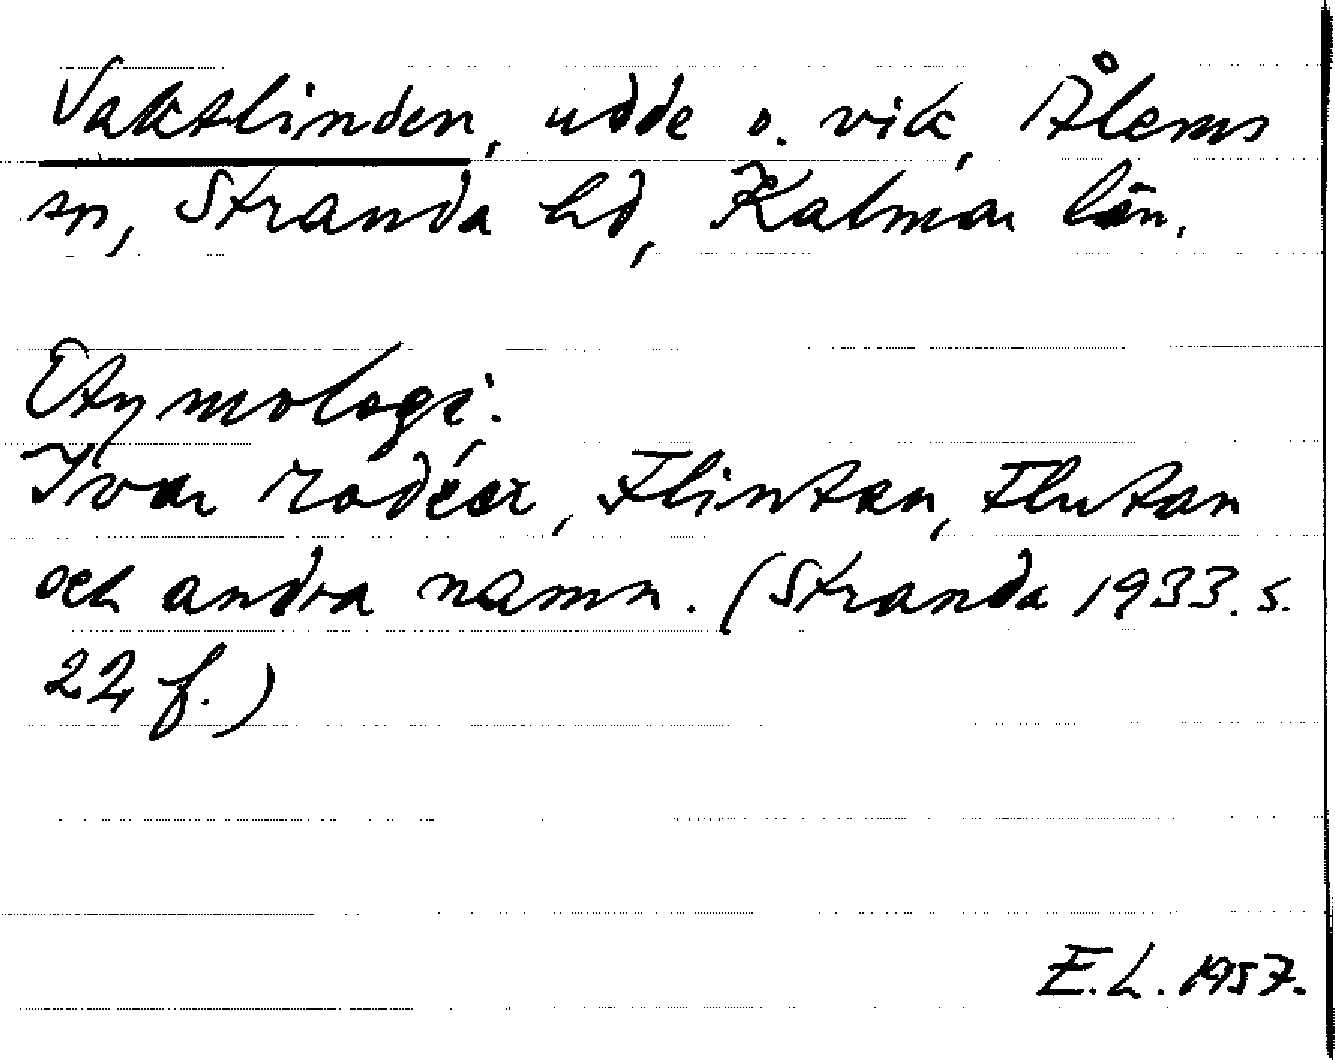 Vaktlinden, udde o. vik, Ålems
sn, Stranda hd, Kalmar län.
Etymologi:
Ivar Modéer, Flintan, Flutan
och andra namn. (Stranda 1933. s.
22 f.)
E.L. 1957.